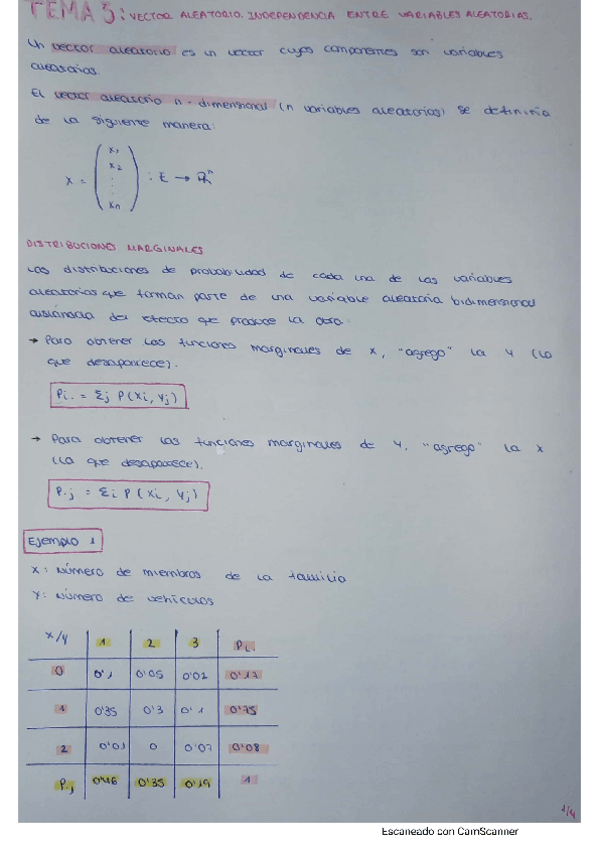 TEMA 3: VECTOR ALEATORIO. INDEPENDENCIA ENTRE VARIABLES ALEATORIAS.
Un vector aleatorio es un vector cuyos componentes son variables
aleatorias.
El vector aleatorio n-dimensional (n variables aleatorias) se definiría
de la siguiente manera:
X = (x1 x2 . . . xn) : E → Rⁿ
DISTRIBUCIONES MARGINALES
Las distribuciones de probabilidad de cada una de las variables
aleatorias que forman parte de una variable aleatoria bidimensional
aislándola del efecto que produce la otra.
→ Para obtener las funciones marginales de X, "agrego" la Y (la
que desaparece).
Pi. = Σj P(xi, yj)
→ Para obtener las funciones marginales de Y, "agrego" la X
(la que desaparece).
P.j = Σi P(xi, yj)
Ejemplo 1
X: Número de miembros de la familia
Y: Número de vehículos
X/Y 1 2 3 Pi.
0 0'1 0'05 0'02 0'17
1 0'35 0'3 0'1 0'75
2 0'01 0 0'07 0'08
P.j 0'46 0'35 0'19 1
1/4
Escaneado con CamScanner